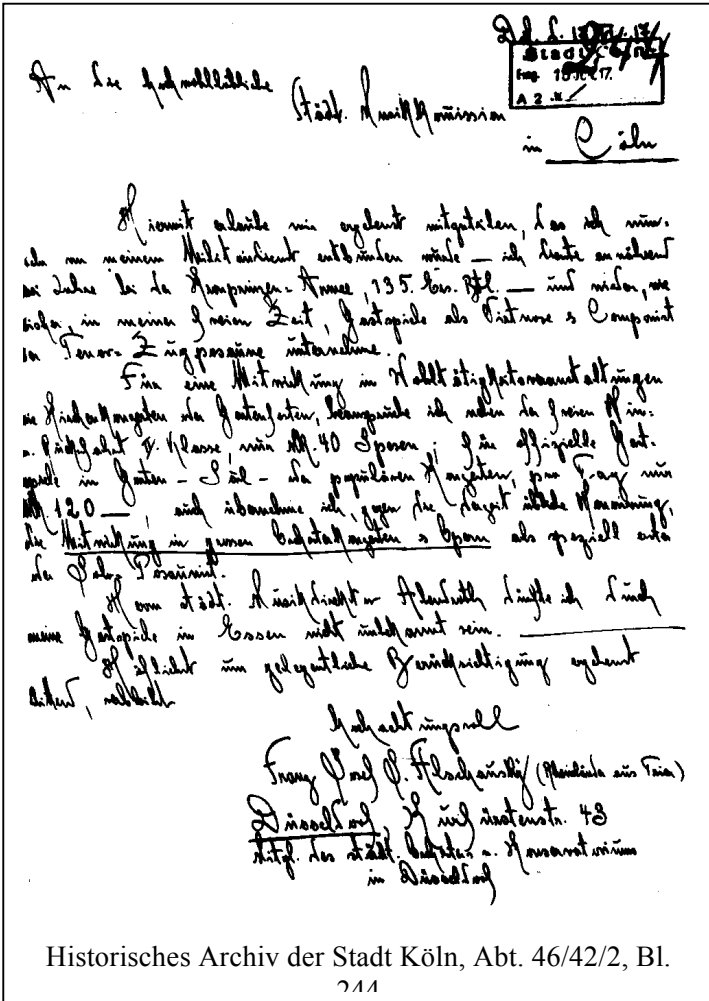 D.d. d. 17
Stadt Cöln
Eing. 18 17.
A 2
An die hochwohllöbliche
Städt. Musikkomission
in Cöln
Hiermit erlaube mir ergebenst mitzuteilen, das ich nun-
von meinem Militairdienst entbunden wurde — ich diente annähernd
Jahre bei der Kronprinzen-Armee, 135. Ers. Btl. — und wieder, wie
in meiner freien Zeit, Gastspiele als Virtuose & Componist
der Tenor-Zugposaune unternehme.
Für eine Mitwirkung in Wohltätigkeitsveranstaltungen
wie Kirchenkonzerten oder Gartenfesten, beanspruche ich neben der freien Hin-
u. Rückfahrt Klasse, nur Mk. 40 Spesen; für offizielle Gast-
spiele in Garten-Saal- oder populären Konzerten, pro Tag nur
Mk 120—, auch übernehme ich, gegen die derzeit übliche Honorirung,
die Mitwirkung in grossen Orchesterkonzerten & Opern als speziell erster
oder Solo-Posaunist.
Herrn städt. Musikdirektor Abendroth dürfte ich durch
meine Gastspiele in Essen nicht unbekannt sein.
Höflichst um gelegentliche Berücksichtigung ergebenst
bittend,
hochachtungsvoll
Franz Josef Alschausky (Rheinländer aus Trier)
Düsseldorf, Kurfürstenstr. 43
Mitgl. des städt. Orchesters u. Konservatorium
in Düsseldorf
Historisches Archiv der Stadt Köln, Abt. 46/42/2, Bl.
244